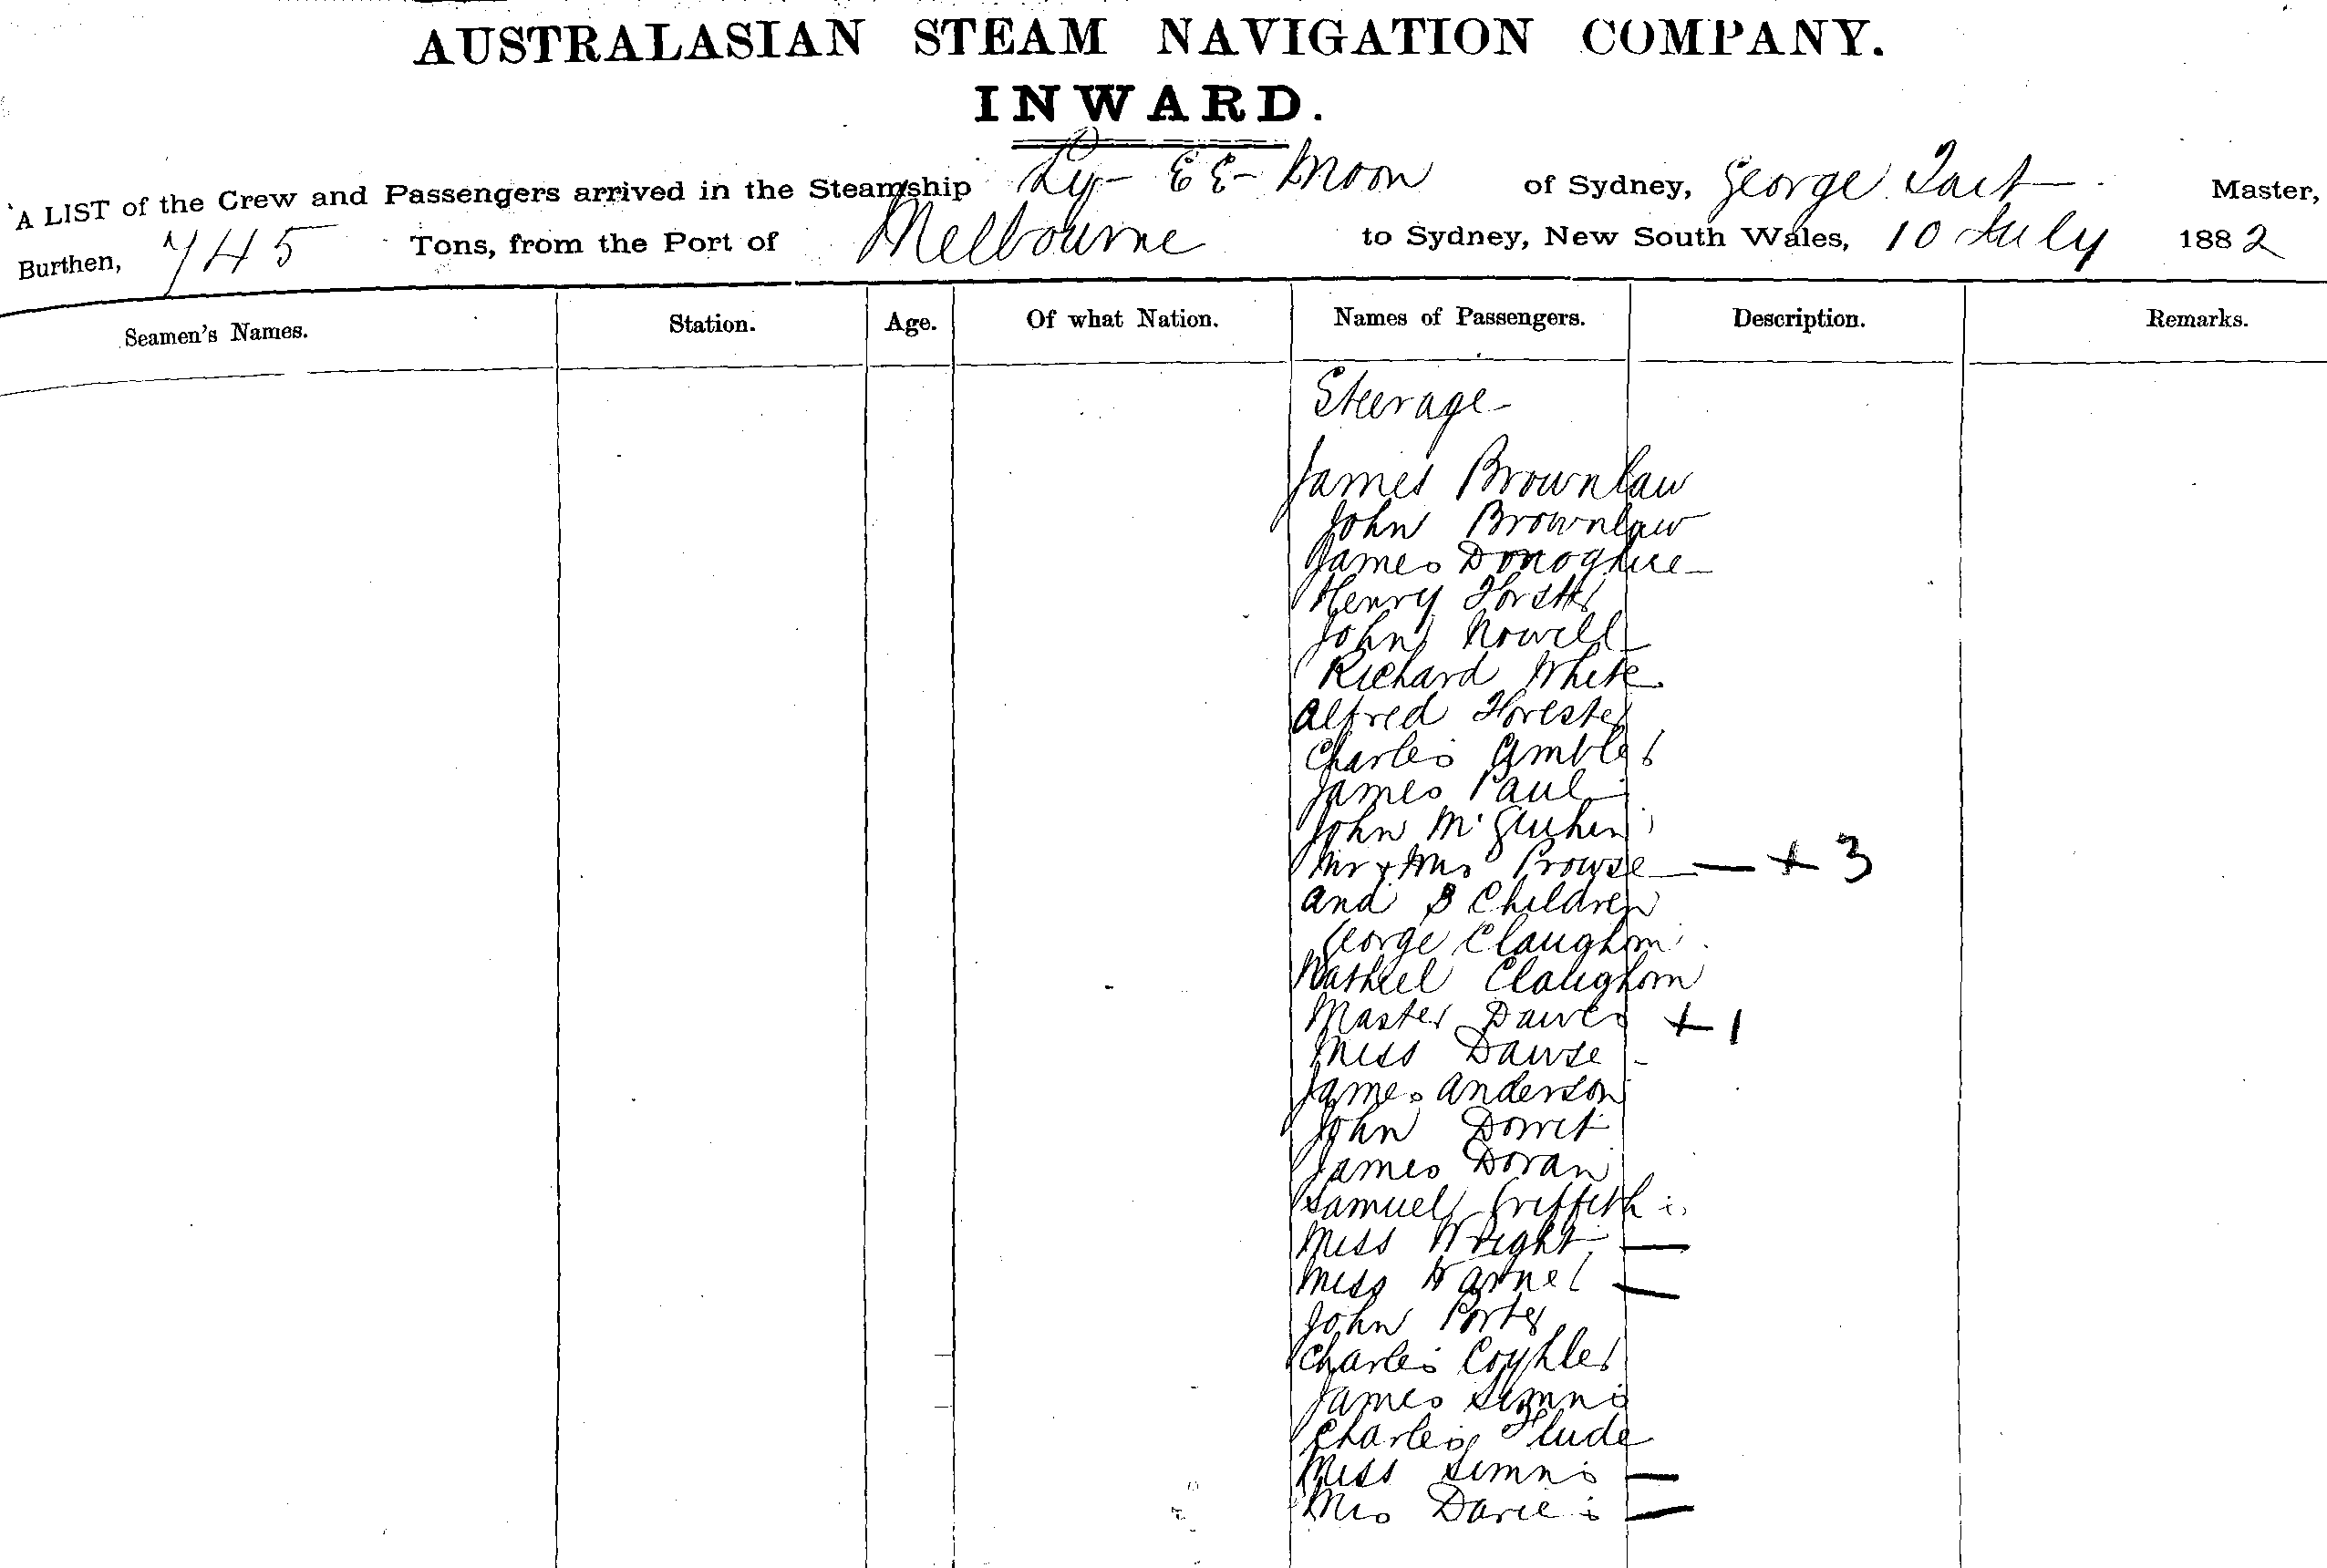 AUSTRALASIAN STEAM NAVIGATION COMPANY.
INWARD.
A LIST of the Crew and Passengers arrived in the Steamship Ly-EE-Moon of Sydney, George Tait Master,
Burthen, 745 Tons, from the Port of Melbourne to Sydney, New South Wales, 10 July 1882
Seamen's Names. Station. Age. Of what Nation. Names of Passengers. Description. Remarks.
Steerage
James Brownlaw
John Brownlaw
James Donoghue
Henry Forster
John Nowell
Richard White
Alfred Forester
Charles Ambler
James Paul
John
Mr & Mrs Prowse — + 3
and 3 Children
George Claughorn
Claughorn
Master Dawes + 1
Miss Dawse
James Anderson
John Dorret
James Doran
Samuel Griffiths
Miss Wright —
Miss —
John Porter
Charles
James Simns
Charles Flude
Miss Simns —
Mrs Davies —